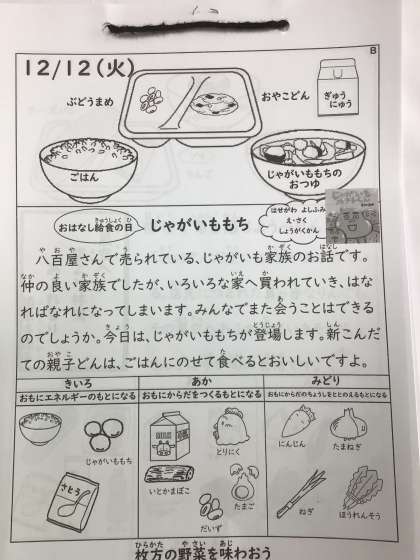 B
12/12(火)
ぶどうまめ
おやこどん
ぎゅう
にゅう
ごはん
じゃがいももちの
おつゆ
おはなし給食の日
じゃがいももち
はせがわ よしふみ
え・さく
しょうがくかん
八百屋さんで売られている、じゃがいも家族のお話です。
仲の良い家族でしたが、いろいろな家へ買われていき、はな
ればなれになってしまいます。みんなでまた会うことはできる
のでしょうか。今日は、じゃがいももちが登場します。新こんだ
ての親子どんは、ごはんにのせて食べるとおいしいですよ。
きいろ
あか
みどり
おもにエネルギーのもとになる
おもにからだをつくるもとになる
おもにからだのちょうしをととのえるもとになる
じゃがいももち
さとう
MILK
とりにく
いとかまぼこ
たまご
だいず
にんじん
たまねぎ
ねぎ
ほうれんそう
枚方の野菜を味わおう